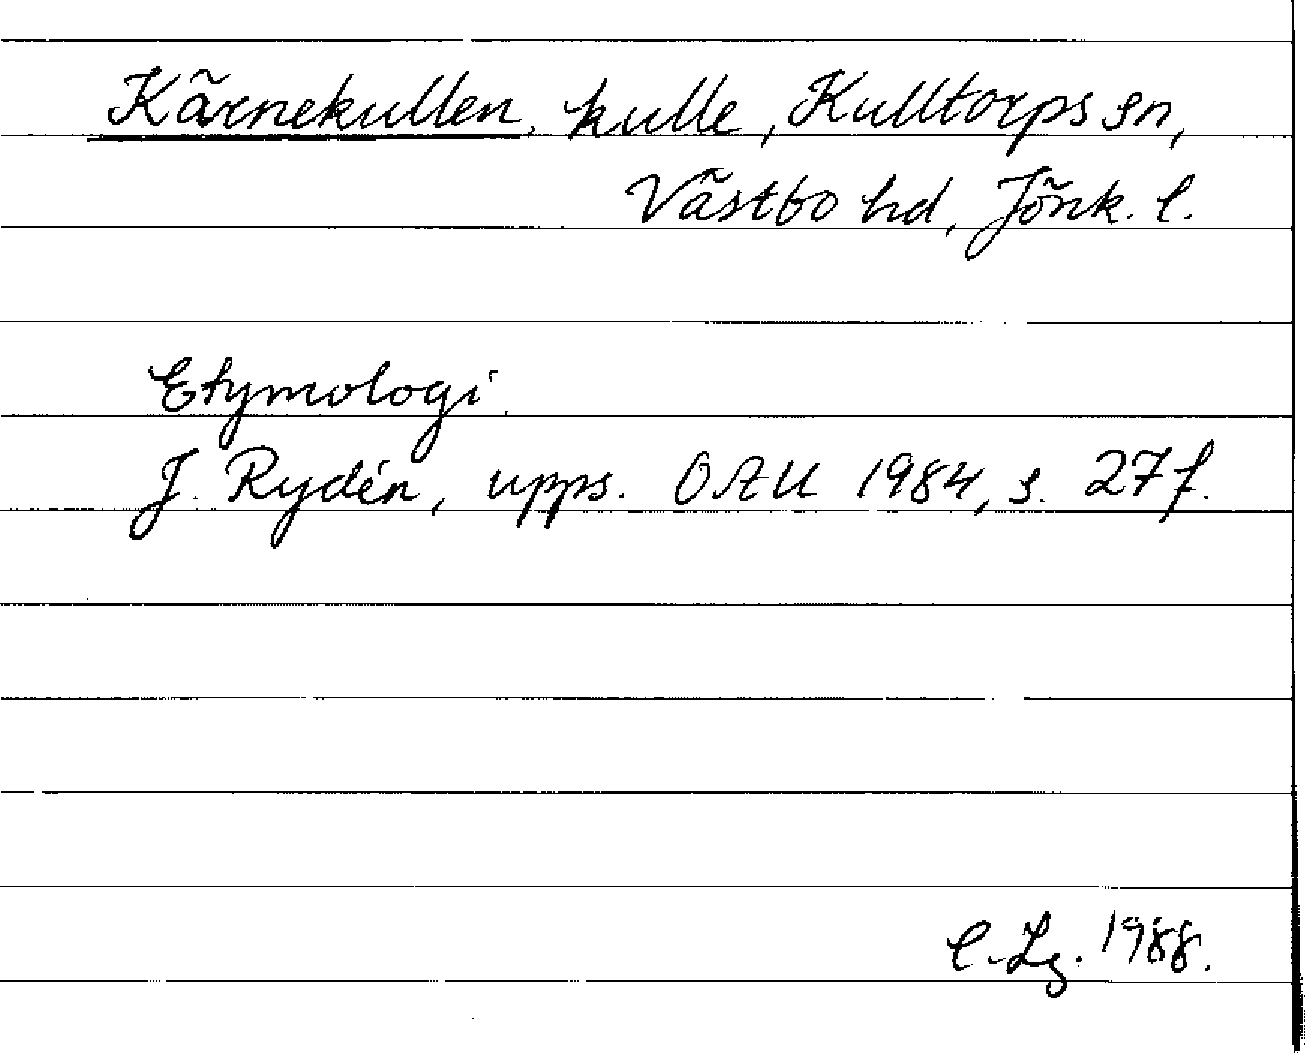 Kärnekullen, kulle, Kulltorps sn,
Västbo hd, Jönk. l.
Etymologi.
J. Rydén, upps. OAU 1984, s. 27 f.
C. Lg. 1988.